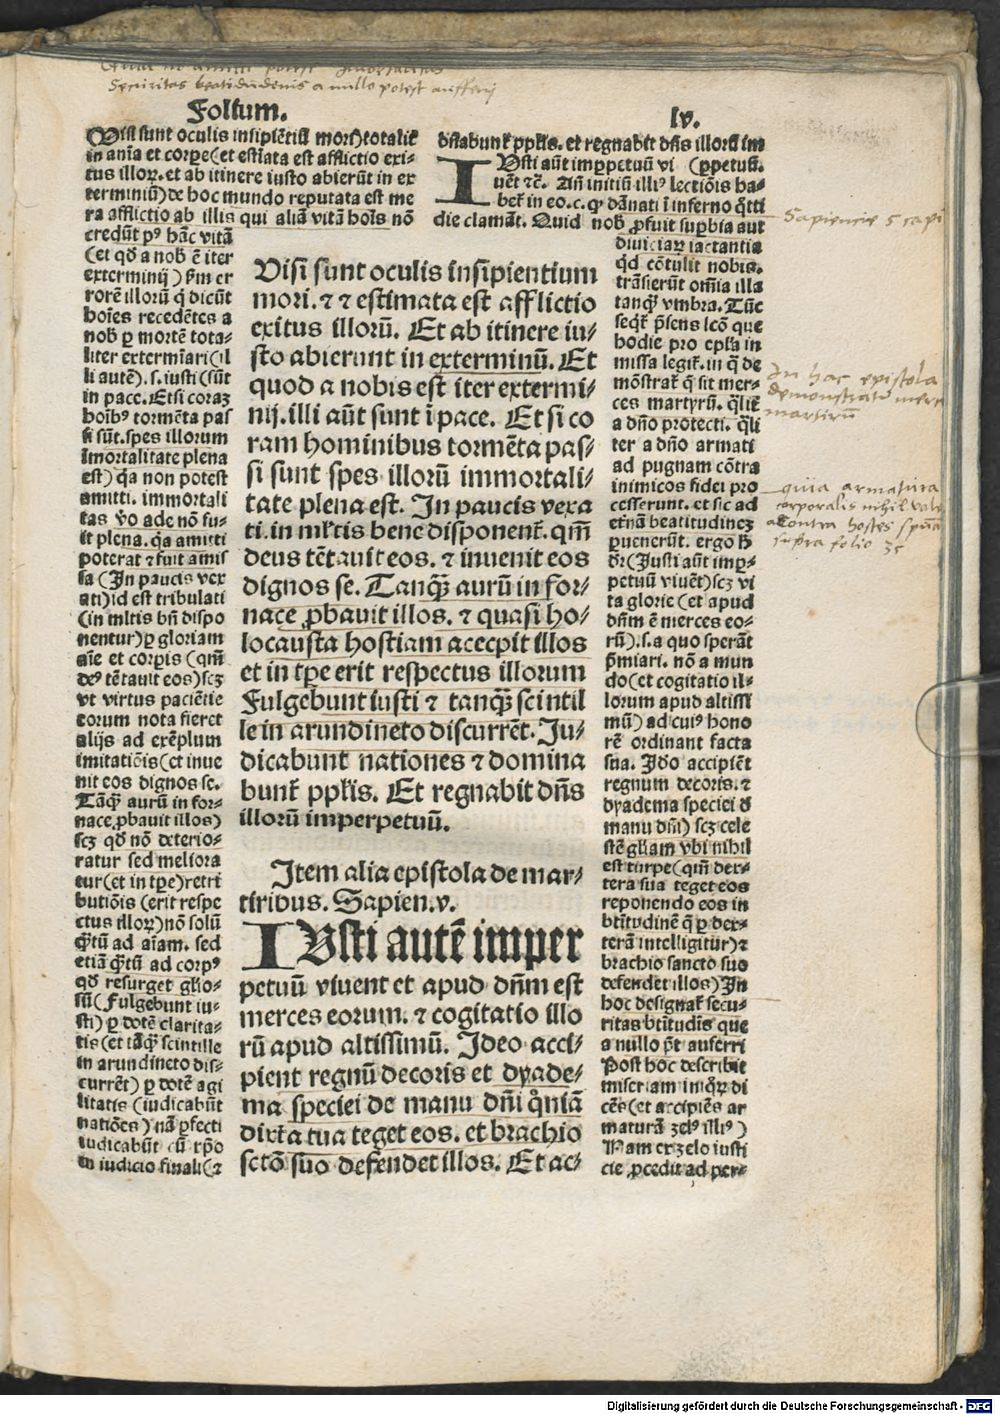 Securitas beatitudinis a nullo potest aufferri
Folium. lv.
Visi sunt oculis insipiētiū mori) totalit̄
in aīa et corpe(et estīata est afflictio exi-
tus illoꝝ. et ab itinere iusto abierūt in ex
terminiū) de hoc mundo reputata est me
ra afflictio ab illis qui aliā vitā hoīs nō
credūt pꝰ hāc vitā
(et qd̄ a nob̄ ē iter
exterminij) p̄m er
rorē illorū q̄ dicūt
hoīes recedētes a
nob̄ ꝑ mortē tota-
liter extermīari(il
li autē). s. iusti (sūt
in pace. Et si coraȝ
hoībꝰ tormēta pas
si sūt. spes illorum
īmortalitate plena
est) q̄a non potest
amitti. immortali
tas v̄o ade nō fu-
it plena. q̄a amitti
poterat ⁊ fuit amis
sa (In paucis vex
ati) id est tribulati
(in mltis bn̄ dispo
nentur) ꝑ gloriam
aīe et corpis (qm̄
deꝰ tētauit eos) scȝ
vt virtus paciētie
eorum nota fieret
alijs ad exēplum
imitatiōis (et inue
nit eos dignos se.
Tāqꝫ aurū in for-
nace ꝓbauit illos)
scȝ qd̄ nō deterio-
ratur sed meliora
tur (et in tꝑe) retri
butiōis (erit respe
ctus illoꝝ) nō solū
q̄tū ad aīam. sed
etiā q̄tū ad corpꝰ
qd̄ resurget glio-
sū (Fulgebunt iu-
sti) ꝑ dotē clarita-
tis (et tāqꝫ scintille
in arundineto dis-
currēt) ꝑ dotē agi
litatis (iudicabūt
natiōes) nā ꝑfecti
iudicabūt cū xp̄o
in iudicio finali (⁊
Visi sunt oculis insipientium
mori. ⁊ ⁊ estimata est afflictio
exitus illorū. Et ab itinere iu-
sto abierunt in exterminū. Et
quod a nobis est iter extermi-
nij. illi aūt sunt ī pace. Et si co
ram hominibus tormēta pas-
si sunt spes illorū immortali-
tate plena est. In paucis vexa
ti. in mltis bene disponent̄. qm̄
deus tētauit eos. ⁊ inuenit eos
dignos se. Tanqꝫ aurū in for-
nace ꝓbauit illos. ⁊ quasi ho-
locausta hostiam acecpit illos
et in tꝑe erit respectus illorum
Fulgebunt iusti ⁊ tanqꝫ scintil
le in arundineto discurrēt. Ju-
dicabunt nationes ⁊ domina
bunt̄ pplis. Et regnabit dn̄s
illorū imperpetuū.
Item alia epistola de mar-
tiribus. Sapien. v.
IVsti autē imper
petuū viuent et apud dn̄m est
merces eorum. ⁊ cogitatio illo
rū apud altissimū. Ideo acci-
pient regnū decoris et dyade-
ma speciei de manu dn̄i qm̄iā
dixt̄a tua teget eos. et brachio
sctō suo defendet illos. Et ac-
dn̄abunt̄ pplis. et regnabit dn̄s illorū im
IVsti aūt imppetuū vi (ꝑpetuū.
uēt ⁊c̄. An̄ initiū illiꝰ lectiōis ha-
bet̄ in eo. c. qꝫ dānati ī inferno q̄tti
die clamāt. Quid nob̄ ꝓfuit supbia aut
diuiciaꝝ iactantia
qd̄ cōtulit nobis.
trāsierūt om̄ia illa
tanqꝫ vmbra. Tūc
seqt̄ p̄sens lcō que
hodie pro epl̄a in
missa legit̄. in q̄ de
mōstrat̄ q̄ sit mer-
ces martyrū. q̄lit̄
a dn̄o protecti. q̄li
ter a dn̄o armati
ad pugnam cōtra
inimicos fidei pro
cesserunt. et sic ad
et̄nā beatitudineȝ
ꝑuenerūt. ergo d̄
dr̄ (Justi aūt imp-
petuū viuēt) scȝ vi
ta glorie (et apud
dn̄m ē merces eo-
rū). s. a quo sperāt
p̄miari. nō a mun
do (et cogitatio il-
lorum apud altissi
mū) ad cuiꝰ hono
rē ordinant facta
sua. Ido accipiēt
regnum decoris. ⁊
dyadema speciei d̄
manu dn̄i) scȝ cele
stē gliam vbi nihil
est turpe (qm̄ dex-
tera sua teget eos
reponendo eos in
btītudinē q̄ ꝑ dex-
terā intelligitur) ⁊
brachio sancto suo
defendet illos) In
hoc designat̄ secu-
ritas btītudīs que
a nullo pt̄ auferri
Post hoc describit
miseriam iniq̄ꝝ di
cēs (et accipiēs ar
maturā zelꝰ illiꝰ)
Nam ex zelo iusti
cie ꝓcedit ad per-
Sapiencie 5 capi
In hac epistola
demonstratur merc
martirum
quia armatura
corporalis nihil vale
contra hostes
supra folio 35
Digitalisierung gefördert durch die Deutsche Forschungsgemeinschaft - DFG